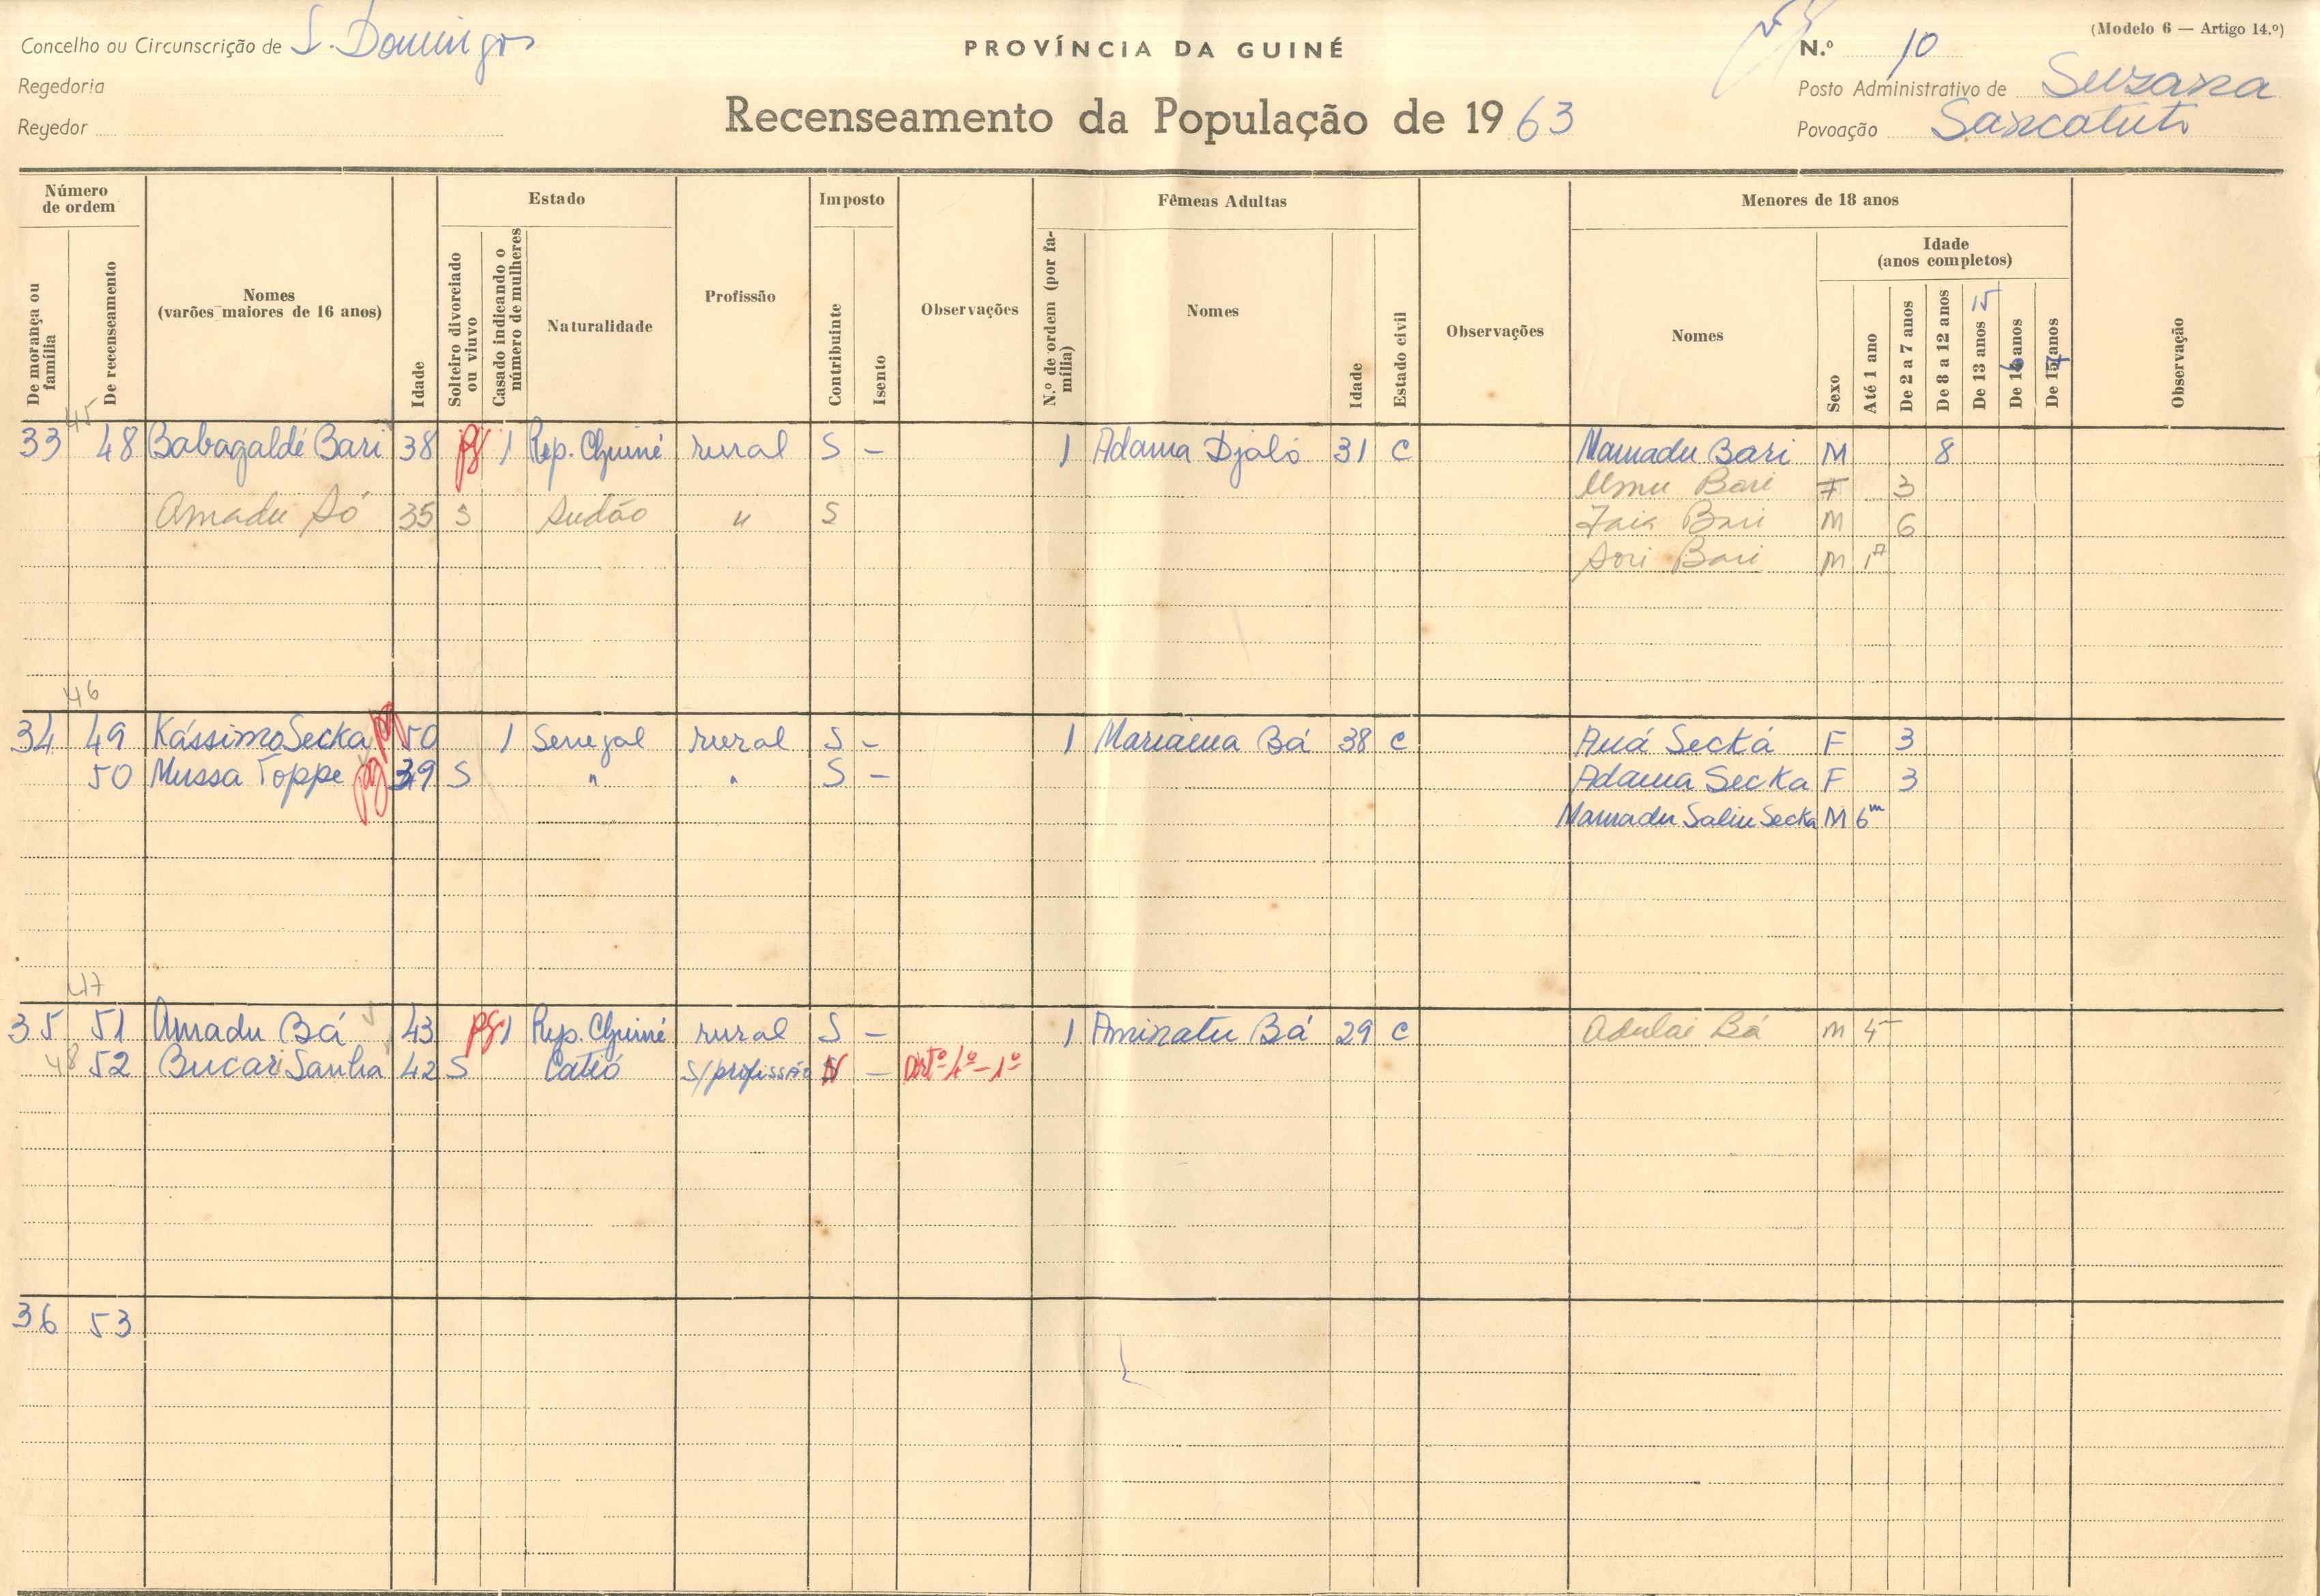 Concelho ou Circunscrição de S. Domingos
Regedoria
Regedor
PROVÍNCIA DA GUINÉ
Recenseamento da População de 1963
(Modelo 6 — Artigo 14.º)
N.º 10
Posto Administrativo de Suzana
Povoação
Número de ordem
De morança ou família
De recenseamento
Nomes (varões maiores de 16 anos)
Idade
Estado
Solteiro divorciado ou viuvo
Casado indicando o número de mulheres
Naturalidade
Profissão
Imposto
Contribuinte
Isento
Observações
Fêmeas Adultas
N.º de ordem (por família)
Nomes
Idade
Estado civil
Observações
Menores de 18 anos
Nomes
Sexo
Idade (anos completos)
Até 1 ano
De 2 a 7 anos
De 8 a 12 anos
De 13 anos 15
De 16 anos
De 17 anos
Observação
45
33 48 Babagaldé Bari 38 pg 1 Rep. Guiné rural S - 1 Adama Djaló 31 C Mamadu Bari M 8
Umu Bari F 3
Amadu Só 35 S Sudão " S Bari M 6
Sori Bari M
46
34 49 Kássimo Secka pg 50 1 Senegal rural S - 1 Mariama Bá 38 C Auá Secká F 3
50 Mussa Toppe pg 39 S " " S - Adama Secka F 3
Mamadu Saliu Secka M 6m
47
35 51 Amadu Bá 43 pg 1 Rep. Guiné rural S - 1 Aminatu Bá 29 C Adulai Bá M
48 52 Bucari Sanha 42 S Catió S/profissão N -
36 53